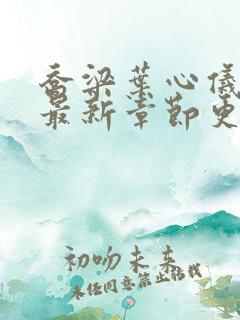 乔梁葉心儀
最新章節更
初吻未来
未经同意禁止转载